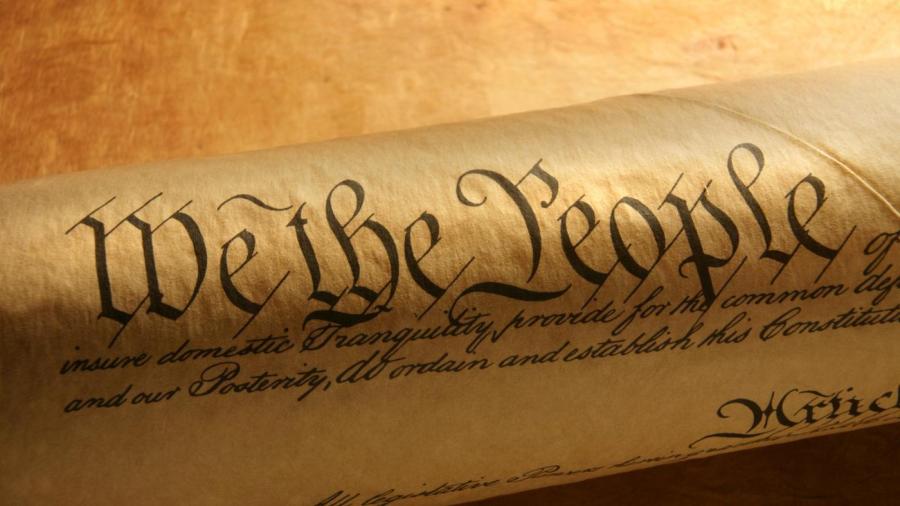 We the People of
insure domestic Tranquility, provide for the common def
and our Posterity, do ordain and establish this Constituti
Articl
All legislative Powers